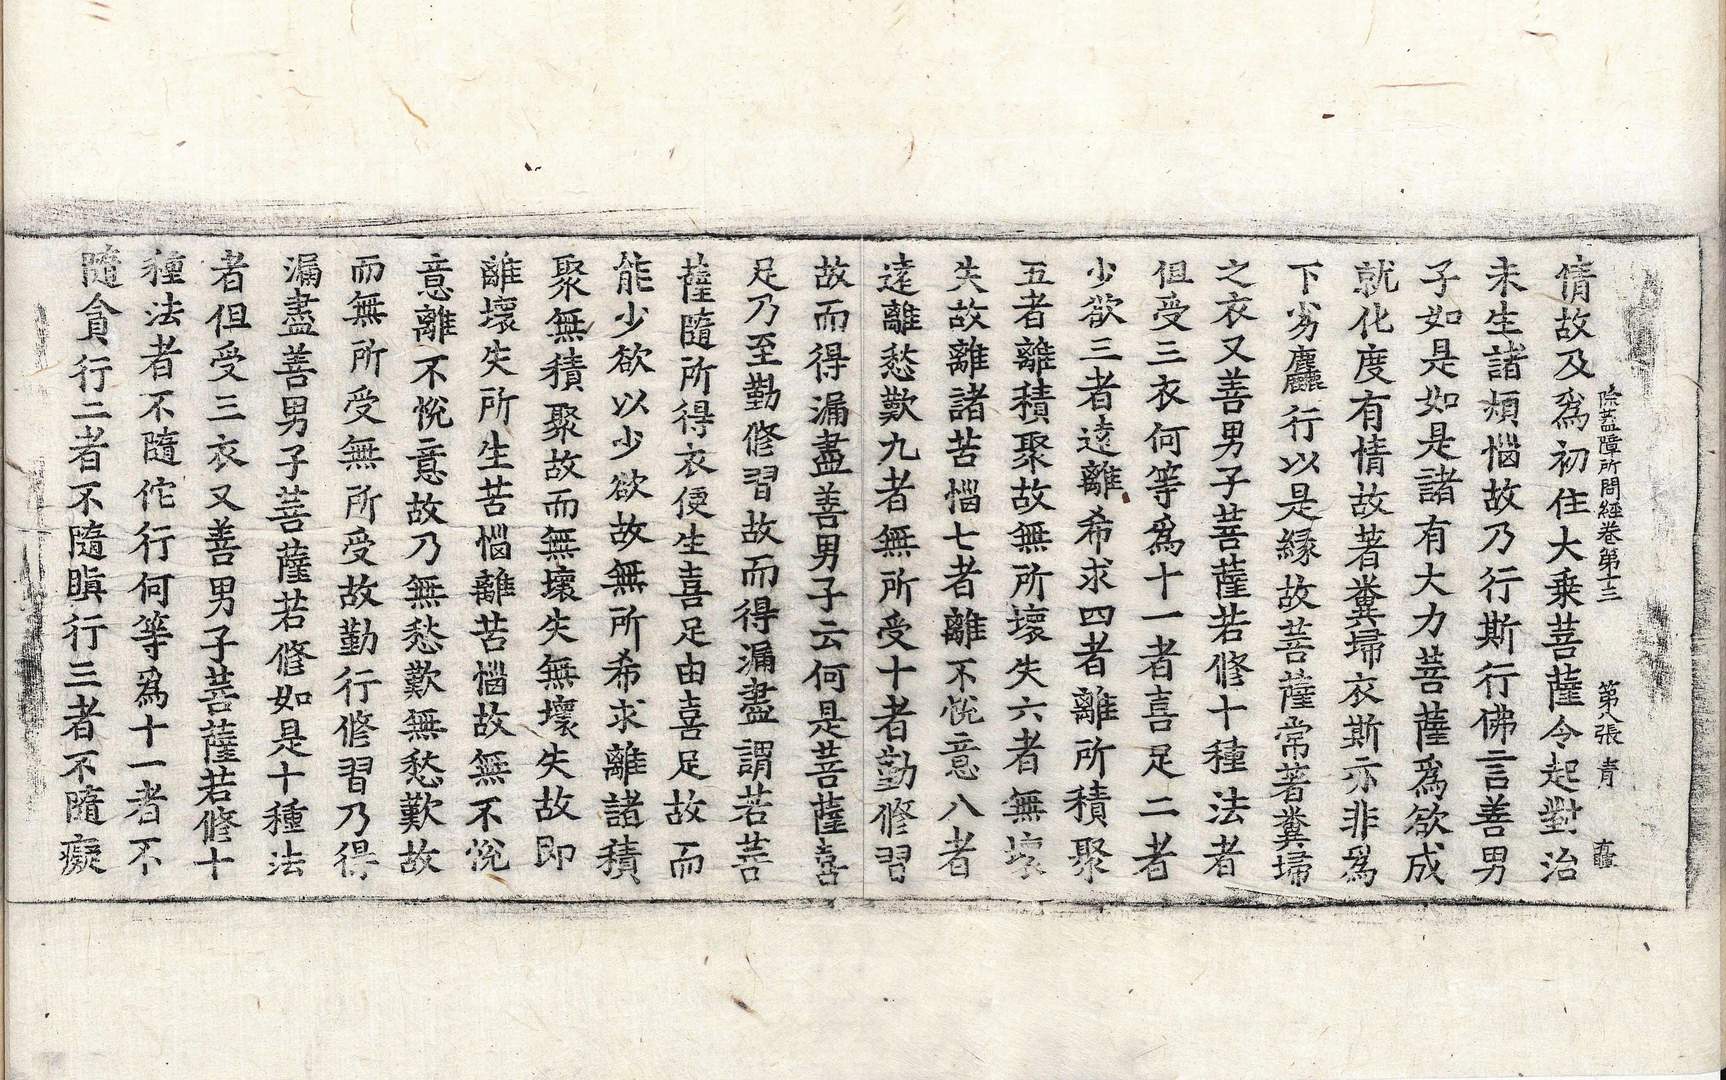 除蓋障所問經卷第十三　第八張　青
情故及爲初住大乗菩薩令起對治
未生諸煩惱故乃行斯行佛言善男
子如是如是諸有大力菩薩爲欲成
就化度有情故著糞埽衣斯亦非爲
下劣麤行以是緣故菩薩常著糞埽
之衣又善男子菩薩若修十種法者
但受三衣何等爲十一者喜足二者
少欲三者遠離希求四者離所積聚
五者離積聚故無所壞失六者無壞
失故離諸苦惱七者離不悅意八者
遠離愁歎九者無所受十者勤修習
故而得漏盡善男子云何是菩薩喜
足乃至勤修習故而得漏盡謂若菩
薩隨所得衣便生喜足由喜足故而
能少欲以少欲故無所希求離諸積
聚無積聚故而無壞失無壞失故即
離壞失所生苦惱離苦惱故無不悅
意離不悅意故乃無愁歎無愁歎故
而無所受無所受故勤行修習乃得
漏盡善男子菩薩若修如是十種法
者但受三衣又善男子菩薩若修十
種法者不隨佗行何等爲十一者不
隨貪行二者不隨瞋行三者不隨癡